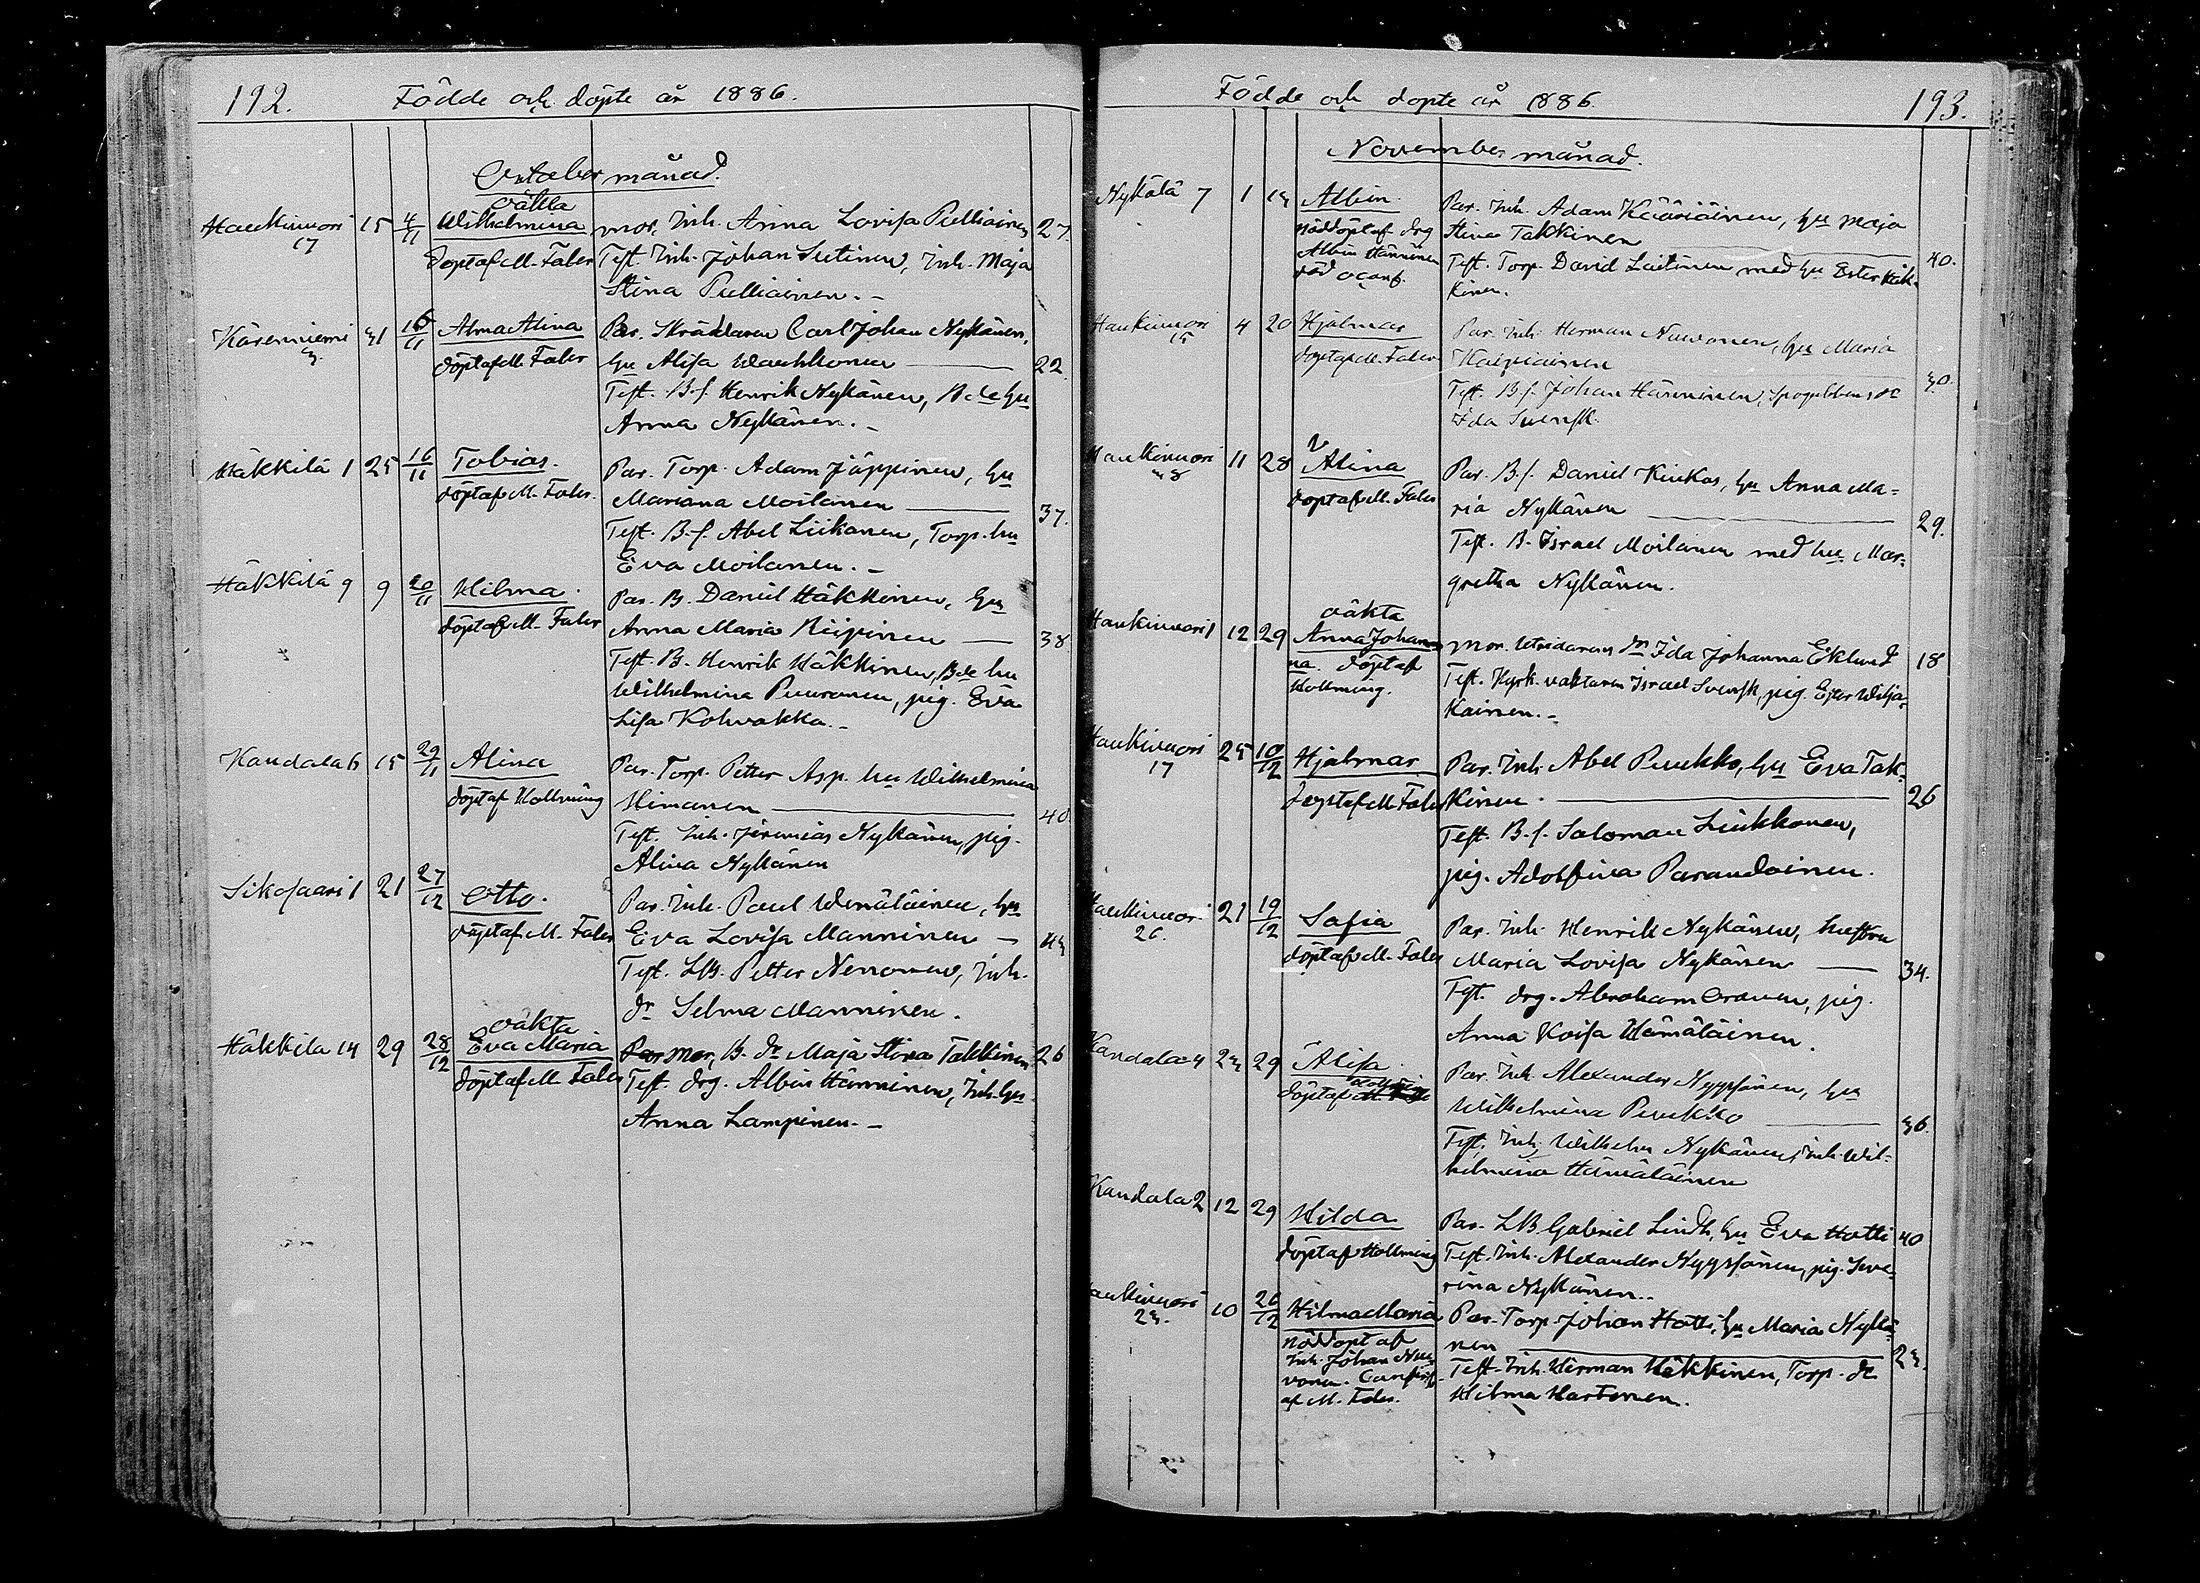 192. Födde och döpte år 1886.
October månad.
Haukivuori 17 15 4/11 oäkta Wilhelmina mor. Inh. Anna Lovisa Pulliainen 27.
döpt af M. Faler Test. Inh. Johan Sutinen, Inh. Maja
Stina Pulliainen. –
Käreniemi 3 31 16/11 Alma Alina Par. Skräddaren Carl Johan Nykänen,
döpt af M. Faler hu Alisa Wauhkonen 22.
Test. B.s. Henrik Nykänen, B.de hu
Anna Nykänen. –
Häkkilä 1 25 16/11 Tobias. Par. Torp. Adam Jäppinen, hu
döpt af M. Faler. Mariana Moilanen 37.
Test. B.s. Abel Liikanen, Torp. hu
Eva Moilanen. –
Häkkilä 9 9 20/11 Hilma. Par. B. Daniel Häkkinen, hu
döpt af M. Faler Anna Maria Reipinen 38
Test. B. Henrik Häkkinen, B.de hu
Wilhelmina Puuronen, pig. Eva
Lisa Kohvakka. –
Kandala 6 15 29/11 Alina Par. Torp. Petter Asp. hu Wilhelmina
döpt af Hollming Himanen 40.
Test. Inh. Jeremias Nykänen, pig.
Alina Nykänen
Sikosaari 1 21 27/12 Otto. Par. Inh. Paul Hämäläinen, hu
döpt af M. Faler Eva Lovisa Manninen – 43
Test. LB. Petter Nenonen, Inh.
dr Selma Manninen.
Häkkilä 14 29 28/12 oäkta Eva Maria Par mor, B. dr Maja Stina Takkinen 26
döpt af M. Faler Test. drg. Albin Hänninen, Inh. hu
Anna Lampinen. –
Födde och döpte år 1886. 193.
November månad.
Nykälä 7 1 13 Albin. Par. Inh. Adam Kääriäinen, hu Maja
nöddöpt af drg Stina Takkinen 40.
Albin Hänninen Test. Torp. David Laitinen med hu Ester Häk-
conf. kinen.
Haukivuori 15 4 20 Hjalmar Par. Inh. Herman Nuvonen, hu Maria
döpt af M. Faler Haipiainen 30.
Test. B.s. Johan Hänninen,
Ida Svensk.
Haukivuori 38 11 28 Alina Par. B.s. Daniel Kiukas, hu Anna Ma-
döpt af M. Faler ria Nykänen 29.
Test. B. Israel Moilanen med hu Mar-
gretha Nykänen.
Haukivuori 1 12 29 oäkta Anna Johan- mor. dr Ida Johanna Eklund 18
na. döpt af Test. Kyrk. vaktaren Israel Svensk, pig. Ester Wilja-
Hollming. kainen. –
Haukivuori 17 25 10/12 Hjalmar Par. Inh. Abel Puukko, hu Eva Tak-
döpt af M. Faler kinen. 26
Test. B.s. Saloman Liukkonen,
pig. Adolfina Parandainen.
Haukivuori 26. 21 19/12 Sofia Par. Inh. Henrik Nykänen, hustru
döpt af M. Faler Maria Lovisa Nykänen 34.
Test. drg. Abraham Oranen, pig.
Anna Lovisa Hämäläinen.
Kandala 4 23 29 Alisa. Par. Inh. Alexander Nyyssönen, hu
döpt af Hollming Wilhelmina Puukko 36.
Test. Inh. Wilhelm Nykänen, Inh. Wil-
helmina Hämäläinen
Kandala 2 12 29 Hilda Par. LB Gabriel Lindh, hu Eva Hatti 40
döpt af Hollming Test. Inh. Alexander Nyyssönen, pig. Seve-
rina Nykänen. –
Haukivuori 23. 10 26/12 Hilma Maria Par. Torp. Johan Hatti, hu Maria Nykä-
nöddöpt af nen 23.
Inh. Johan Nu- Test. Inh. Herman Häkkinen, Torp. dr
vonen. Confirm. Hilma Hartonen.
af M. Faler.